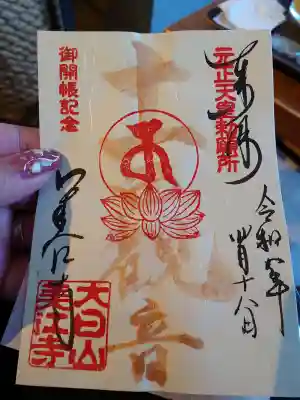 元正天皇勅願所
奉拝
四月十八日
十一面観音
御開帳記念
美江寺
大日山
美江寺